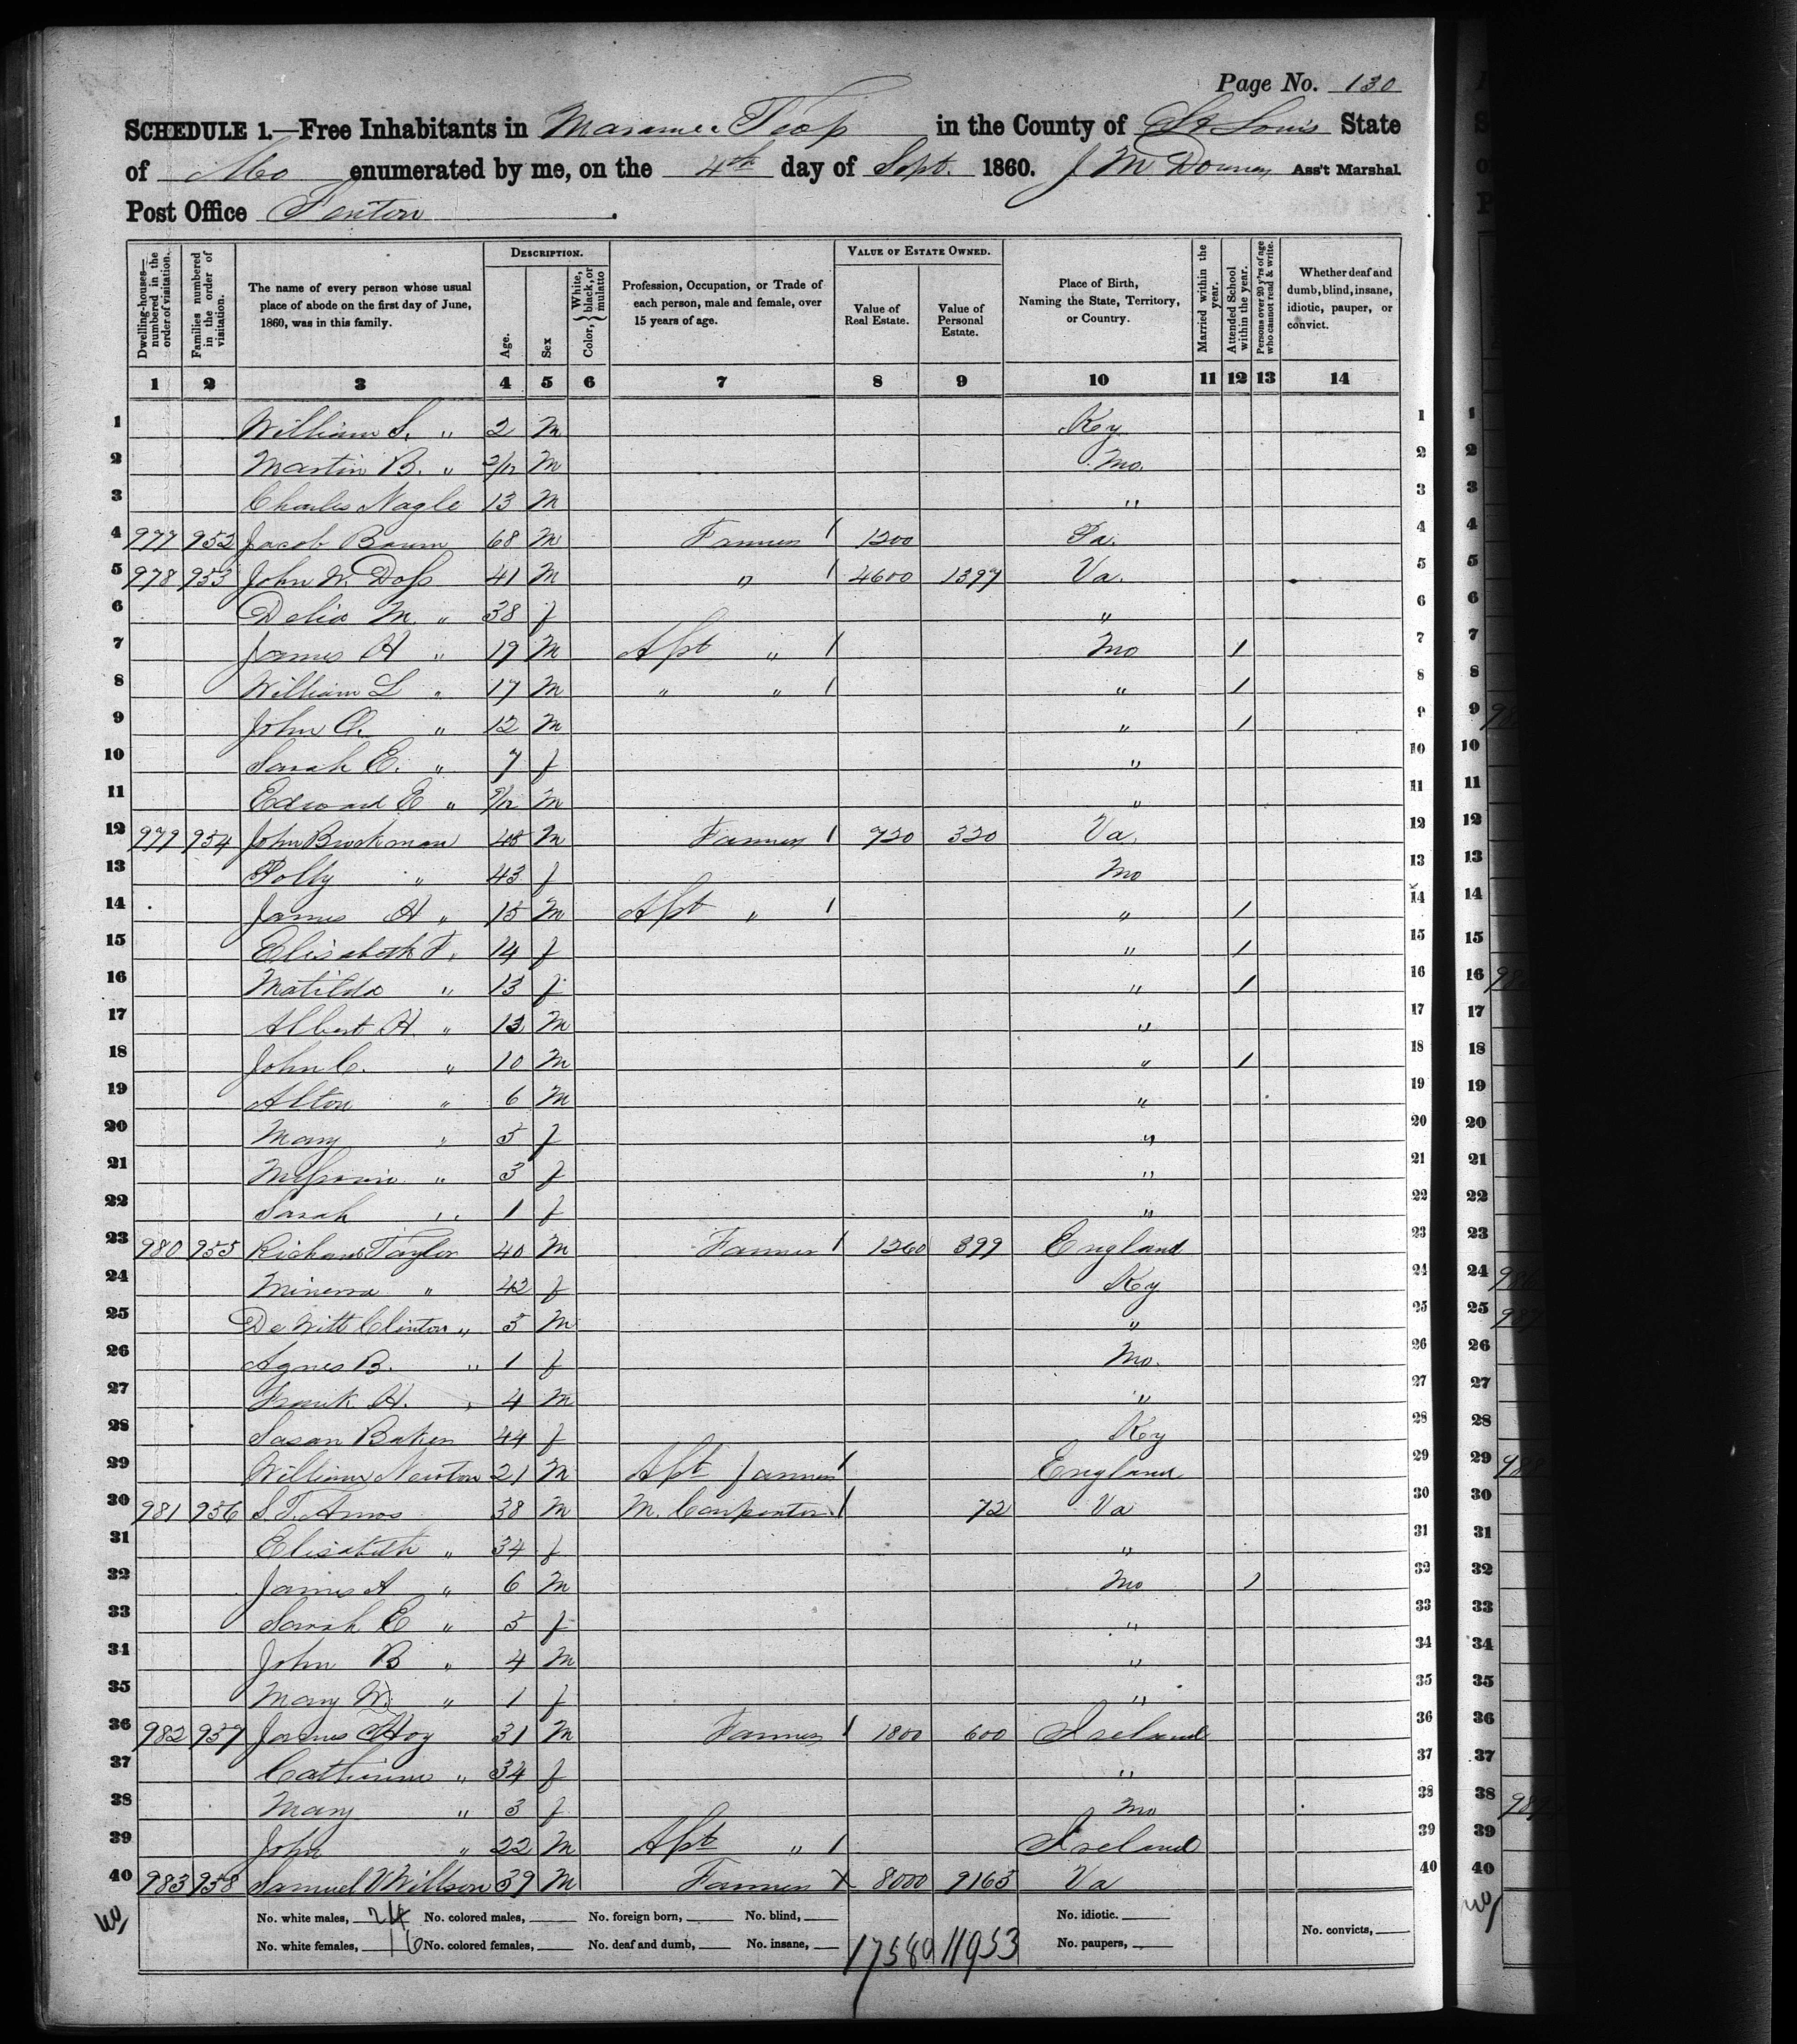 Page No. 130
SCHEDULE 1.—Free Inhabitants in Maramec Twp in the County of St Louis State
of Mo enumerated by me, on the 4th day of Sept. 1860. J M Ass't Marshal.
Post Office Fenton
Dwelling-houses—numbered in the order of visitation.
Families numbered in the order of visitation.
The name of every person whose usual place of abode on the first day of June, 1860, was in this family.
DESCRIPTION.
Age.
Sex
Color, { White, black, or mulatto
Profession, Occupation, or Trade of each person, male and female, over 15 years of age.
VALUE OF ESTATE OWNED.
Value of Real Estate.
Value of Personal Estate.
Place of Birth, Naming the State, Territory, or Country.
Married within the year.
Attended School within the year.
Persons over 20 y'rs of age who cannot read & write.
Whether deaf and dumb, blind, insane, idiotic, pauper, or convict.
1 2 3 4 5 6 7 8 9 10 11 12 13 14
1 William S. " 2 m Ky 1
2 Martin B. " 2/12 m Mo. 2
3 Charles Nagle 13 m " 3
4 977 952 Jacob Baum 68 m Farmer / 1200 Pa. 4
5 978 953 John W. Doss 41 m " / 4600 1397 Va. 5
6 Delia M. " 38 f " 6
7 James H " 19 m Asst " / Mo / 7
8 William L " 17 m " " / " / 8
9 John O. " 12 m " / 9
10 Sarah E. " 7 f " 10
11 Edward E " 9/12 m " 11
12 979 954 John Brookman 48 m Farmer / 720 320 Va. 12
13 Polly " 43 f Mo 13
14 James H " 15 m Asst " / " / 14
15 Elisabeth F. 14 f " / 15
16 Matilda " 13 f " / 16
17 Albert H. " 13 m " 17
18 John C. " 10 m " / 18
19 Alton " 6 m " 19
20 Mary " 5 f " 20
21 " 3 f " 21
22 Sarah " 1 f " 22
23 980 955 Richard Taylor 40 m Farmer / 1260 399 England 23
24 Minerva " 42 f Ky 24
25 De Witt Clinton " 5 m " 25
26 Agnes B. " 1 f Mo. 26
27 Frank H. " 4 m " 27
28 Susan Baker 44 f Ky 28
29 William Newton 21 m Asst farmer / England 29
30 981 956 S. T. Amos 38 m M. Carpenter / 72 Va 30
31 Elisabeth " 34 f " 31
32 James A " 6 m Mo / 32
33 Sarah E " 5 f " 33
34 John B " 4 m " 34
35 Mary W. " 1 f " 35
36 982 957 James Hoy 31 m Farmer / 1800 600 Ireland 36
37 Catherine " 34 f " 37
38 Mary " 3 f Mo 38
39 John " 22 m Asst " / Ireland 39
40 983 958 Samuel V Willson 39 m Farmer X 8000 9165 Va 40
No. white males, 24 No. colored males, No. foreign born, No. blind, No. idiotic. No. convicts,
No. white females, 16 No. colored females, No. deaf and dumb, No. insane, 17580 11953 No. paupers,